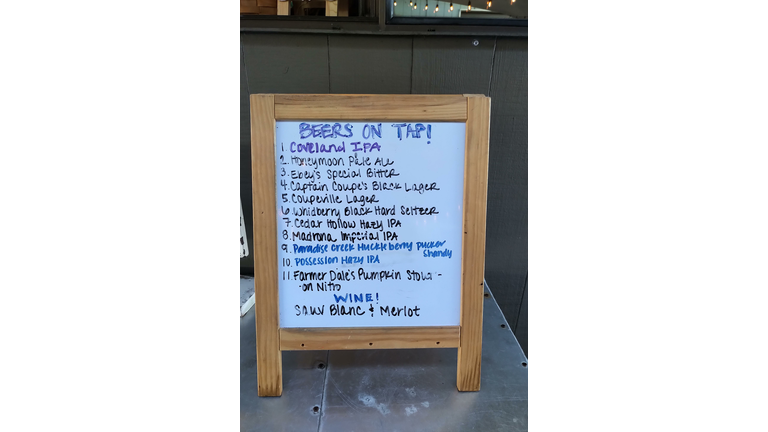 BEERS ON TAP!
1. Coveland IPA
2. Honeymoon Pale Ale
3. Ebey's Special Bitter
4. Captain Coupe's Black Lager
5. Coupeville Lager
6. Whidberry Black Hard Seltzer
7. Cedar Hollow Hazy IPA
8. Madrona Imperial IPA
9. Paradise Creek Huckleberry Pucker
Shandy
10. Possession Hazy IPA
11. Farmer Dale's Pumpkin Stout -
on Nitro
WINE!
Sauv Blanc & Merlot